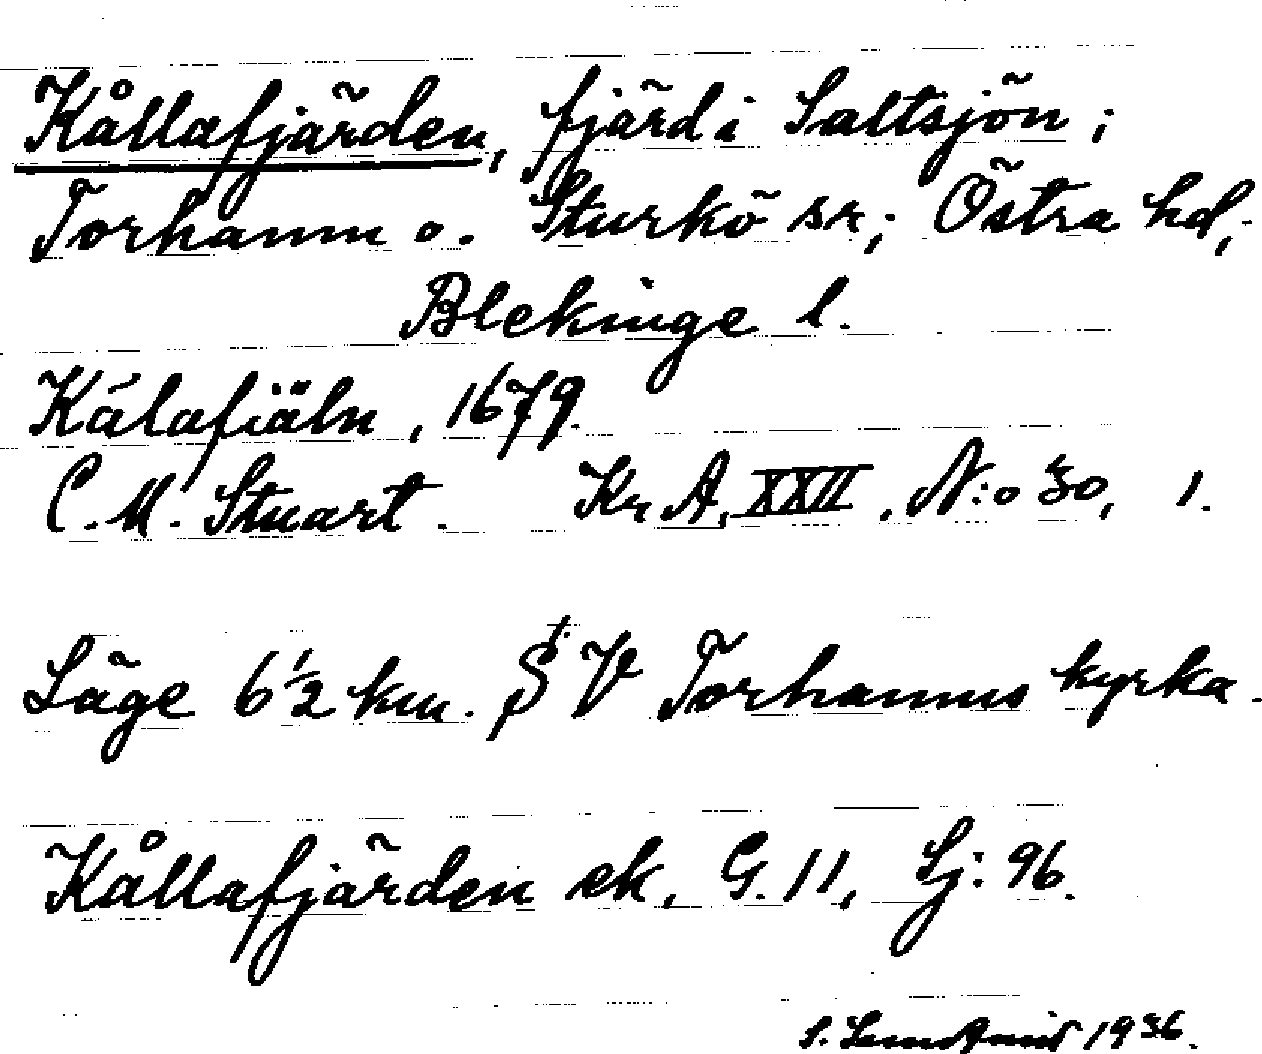 Kållafjärden, fjärd i Saltsjön;
Torhamn o. Sturkö sn; Östra hd,
Blekinge l.
Kålafiäln, 1679.
C. M. Stuart. Kr A, XXII, N:o 30, 1.
Läge 6 1/2 km. S V Torhamns kyrka.
Kållafjärden ek, G. 11, Lj: 96.
S. 1936.